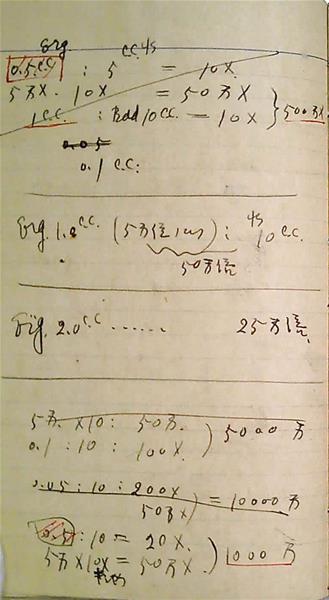 Erg. C.C. 4s
0.5 C.C. : 5 = 10X.
5万X. 10X = 50万X
1 C.C. : 10 C.C. = 10X } 500万X
0.05
0.1 C.C.
Erg. 1.0 C.C. (5万倍 1cc) : 4s 10 C.C.
50万倍
2.0 C.C. ...... 25万倍.
5万. X10 : 50万.
0.1 : 10 : 100X ) 5000万
0.05 : 10 : 200X
50万X ) = 10000万
0.5 : 10 = 20X.
5万X10X = 50万X ) 1000万